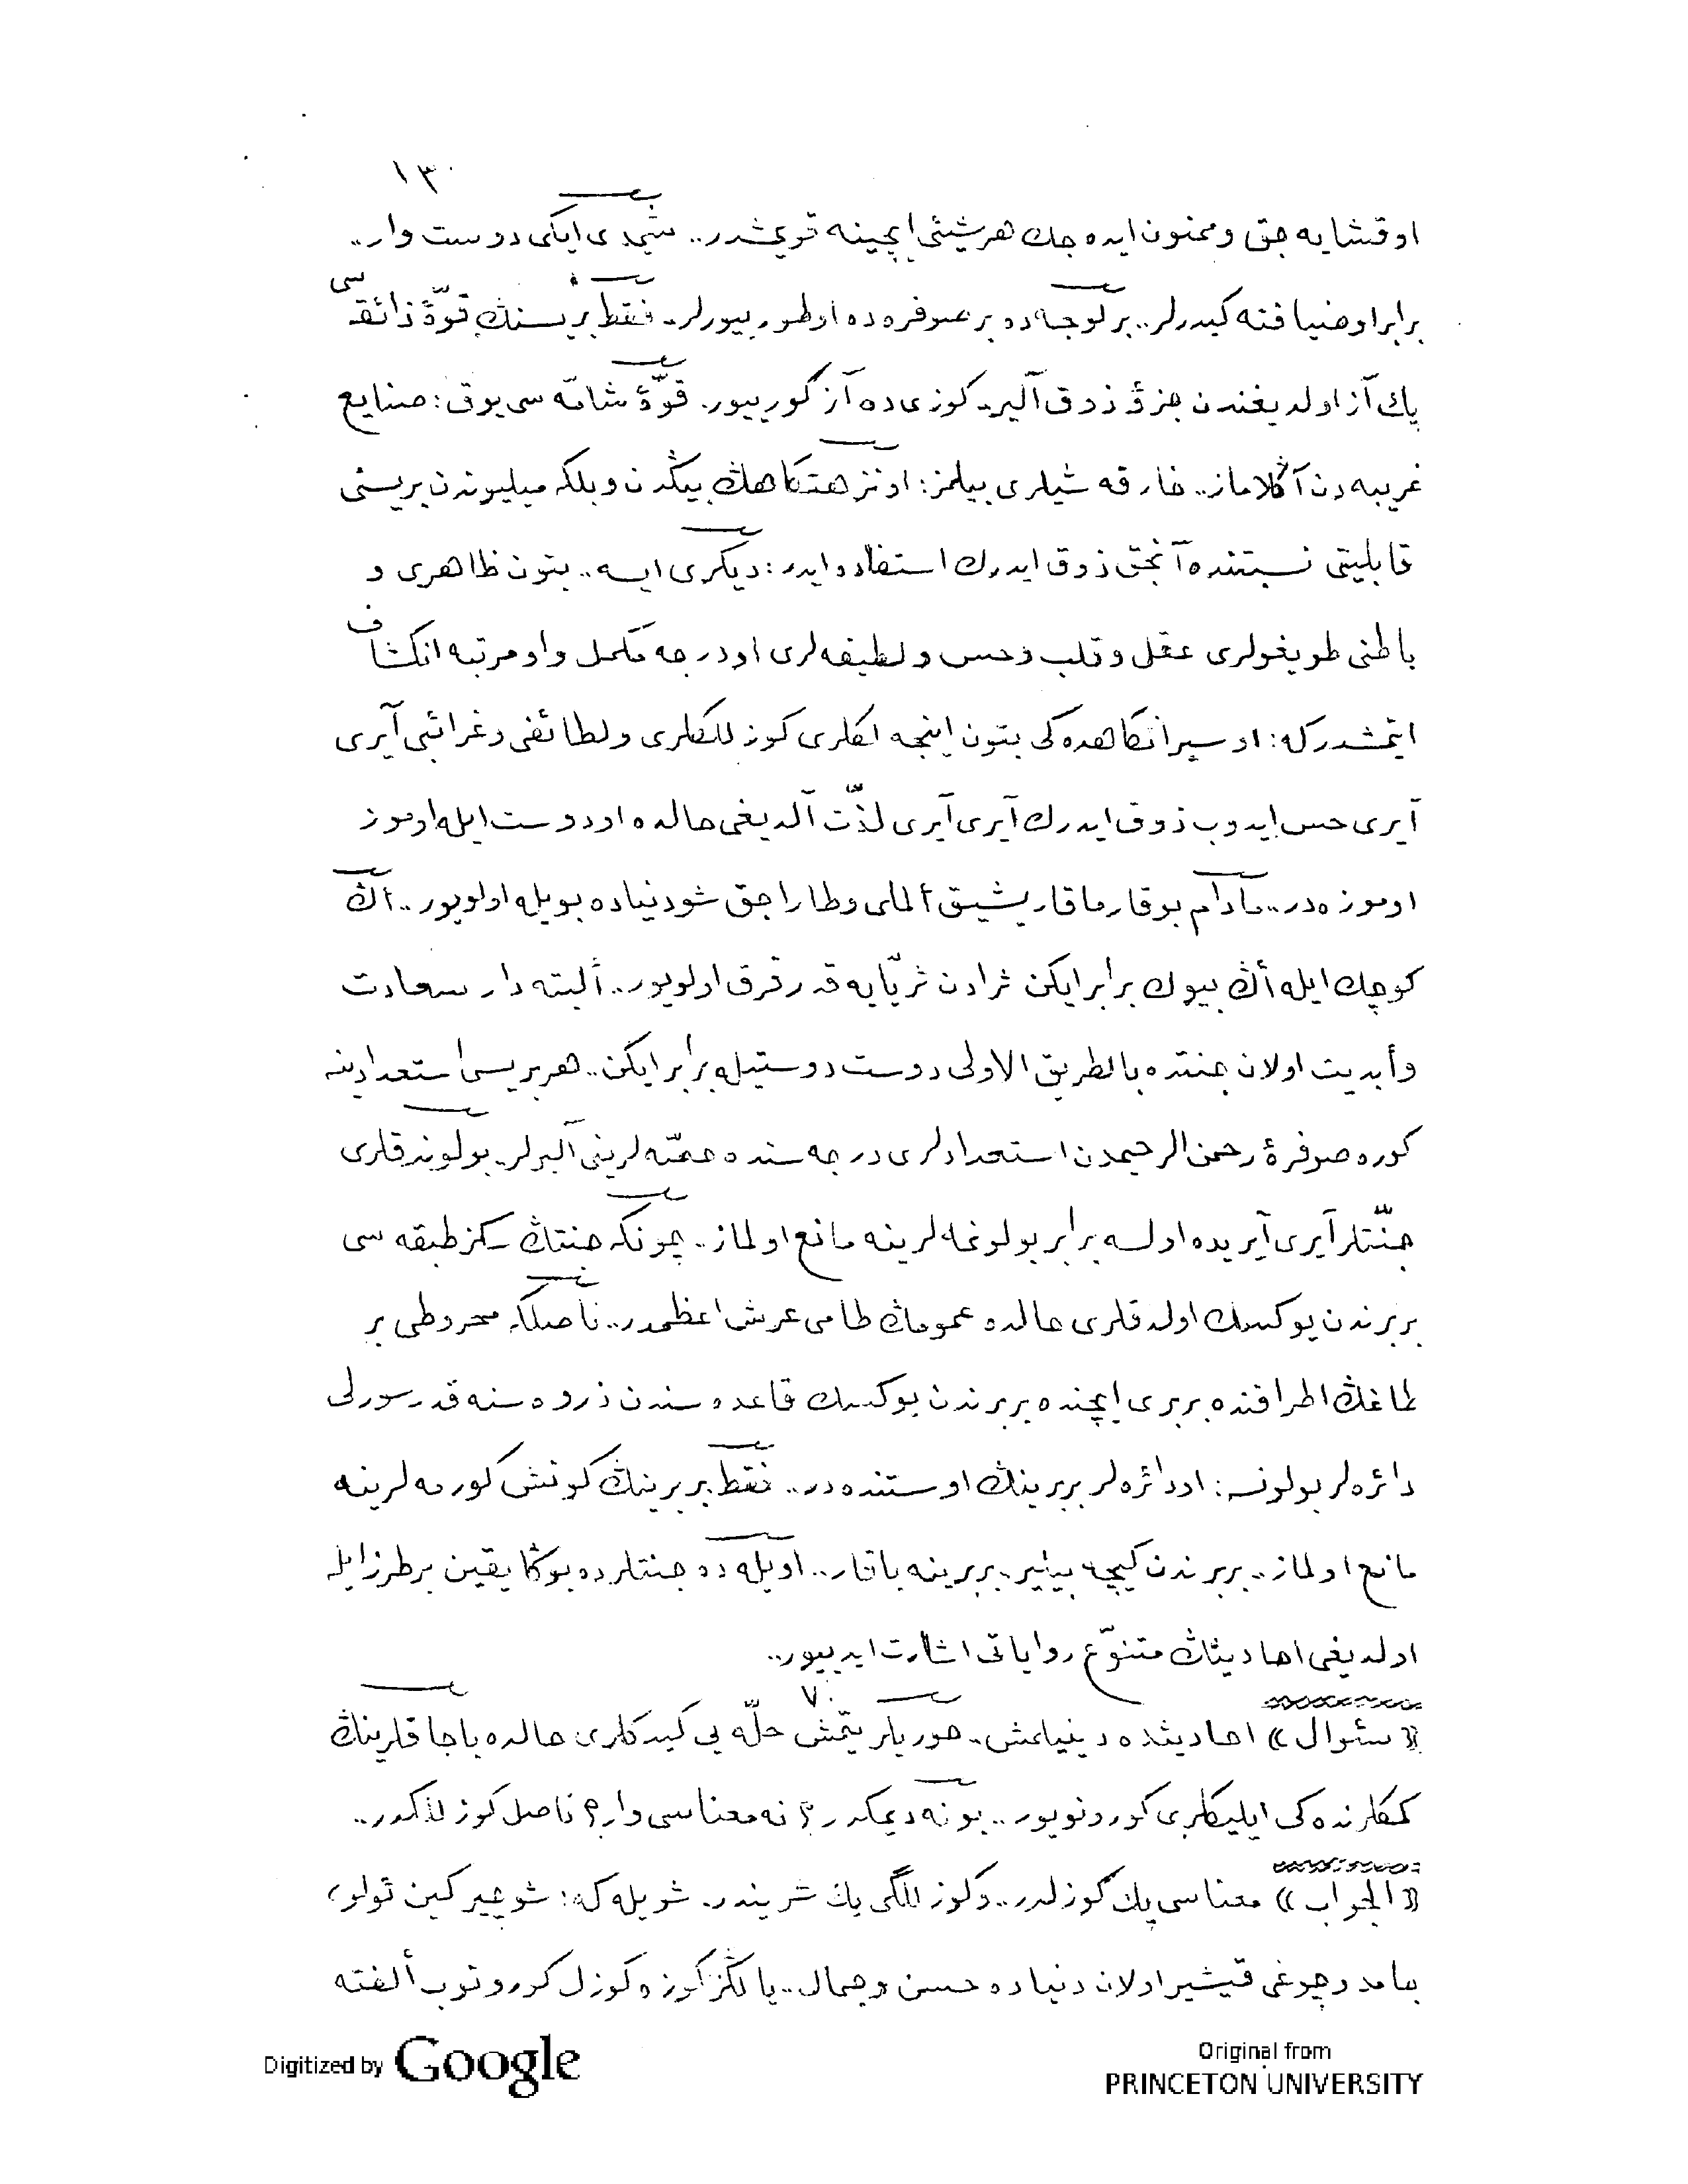 ١٣٠
اوقشايه جق وممنون ايده جك هر شيئى ايچينه قويمشدر.. شيمدى ايكى دوست وار..
برابر او ضيافته كيدرلر.. بر لوجه ده بر صوفره ده اوطوريبورلر. فقط بريسنڭ قوّۀ ذائقه سى
پك آز اولديغندن جزؤ ذوق آلير. كوزى ده آز كورييور. قوّۀ شامّه سى يوق: صنايع
غريبه دن آڭلاماز.. خارقه شيلرى بيلمز: او نزهتكاهڭ بيڭدن وبلكه ميليوندن بريسنى
قابليتى نسبتنده آنجق ذوق ايدرك استفاده ايدر: ديكرى ايسه.. بتون ظاهرى و
باطنى طويغولرى عقل وقلب وحس ولطيفه لرى او درجه مكمل واو مرتبه انكشاف
ايتمشدركه: او سيرانكاهده كى بتون اينجه لكلرى كوزللكلرى ولطائفى وغرائبى آيرى
آيرى حس ايدوب ذوق ايدرك آيرى آيرى لذّت آلديغى حالده او دوست ايله اوموز
اوموزه در.. مادام بو قارما قاريشيق ألملى وطاراجق شو دنياده بويله اولويور.. أڭ
كوچك ايله أڭ بيوك برابر ايكن ثرادن ثريّايه قدر فرق اولويور.. ألبته دار سعادت
وأبديت اولان جنتده بالطريق الاولى دوست دوستيله برابر ايكن.. هر بريسى استعدادينه
كوره صوفرۀ رحمن الرحيمدن استعدادلرى درجه سنده حصّه لرينى آليرلر. بولوندقلرى
جنّتلر آيرى آيريده اولسه برابر بولونمه لرينه مانع اولماز. چونكه جنتڭ سكز طبقه سى
بربرندن يوكسك اولدقلرى حالده عمومڭ طامى عرش اعظمدر.. ناصلكه محروطى بر
طاغڭ اطرافنده بربرى ايچنده بربرندن يوكسك قاعده سندن ذروه سنه قدر سورلى
دائره لر بولونسه: او دائره لر بربرينڭ اوستنده در.. فقط بربرينڭ كونش كورمه لرينه
مانع اولماز.. بربرندن كيچه بيلير. بربرينه باقار.. اويله ده جنتلرده بوڭا يقين بر طرز ايله
اولديغى احاديثڭ متنوّع رواياتى اشارت ايدييور..
٧٠
«سئوال» احاديثده دينيلمش. حوريلر يتمش حلّه يى كيدكلرى حالده باجاقلرينڭ
كمكلرنده كى ايليكلرى كورونويور.. بو نه ديمكدر؟ نه معناسى وار؟ ناصل كوزللكدر..
«الجواب» معناسى پك كوزلدر.. وكوزللگى پك شريندر. شويله كه: شو چيركين ئولو،
جامد وچوغى قيشير اولان دنياده حسن وجمال.. يالڭز كوزه كوزل كورونوب ألفته
Digitized by Google
Original from
PRINCETON UNIVERSITY